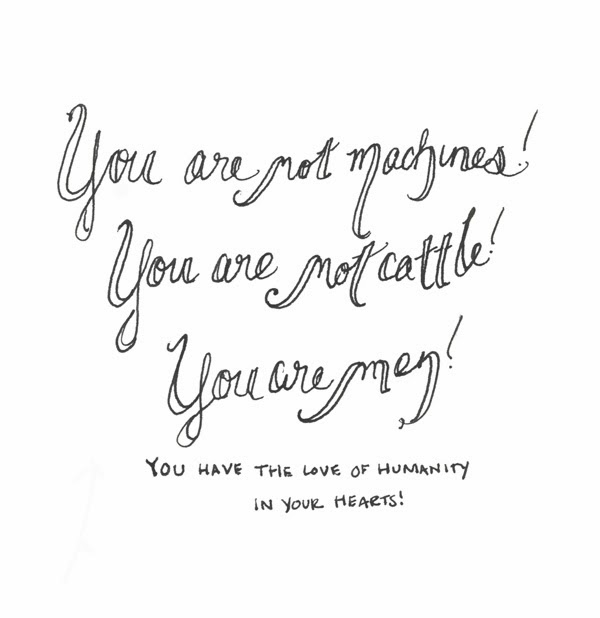 You are not machines!
You are not cattle!
You are men!
YOU HAVE THE LOVE OF HUMANITY
IN YOUR HEARTS!